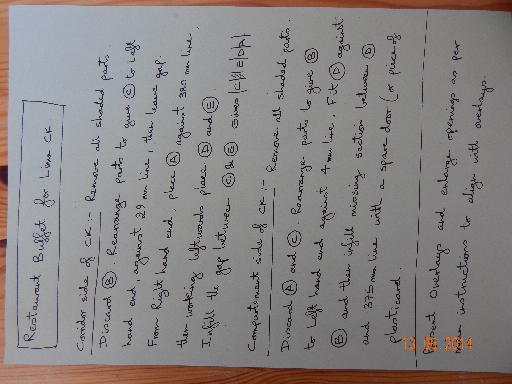 Restaurant Buffet for Lima CK
Corridor side of CK :- Remove all shaded parts.
Discard Ⓑ Rearrange parts to give Ⓒ to left
hand end, against 29 mm line, then leave gap.
From Right hand end, place Ⓐ against 380 mm line,
then working leftwards place Ⓓ and Ⓔ.
Infill the gap between Ⓒ & Ⓔ Gives
Compartment side of CK :- Remove all shaded parts.
Discard Ⓐ and Ⓒ Rearrange parts to give Ⓑ
to left hand end against 4 mm line. Fit Ⓓ against
Ⓑ and then infill missing section between Ⓓ
and 375 mm line with a spare door (or piece of
plasticard.
Present Overlays and enlarge openings as per
main instructions to align with overlays.
2014